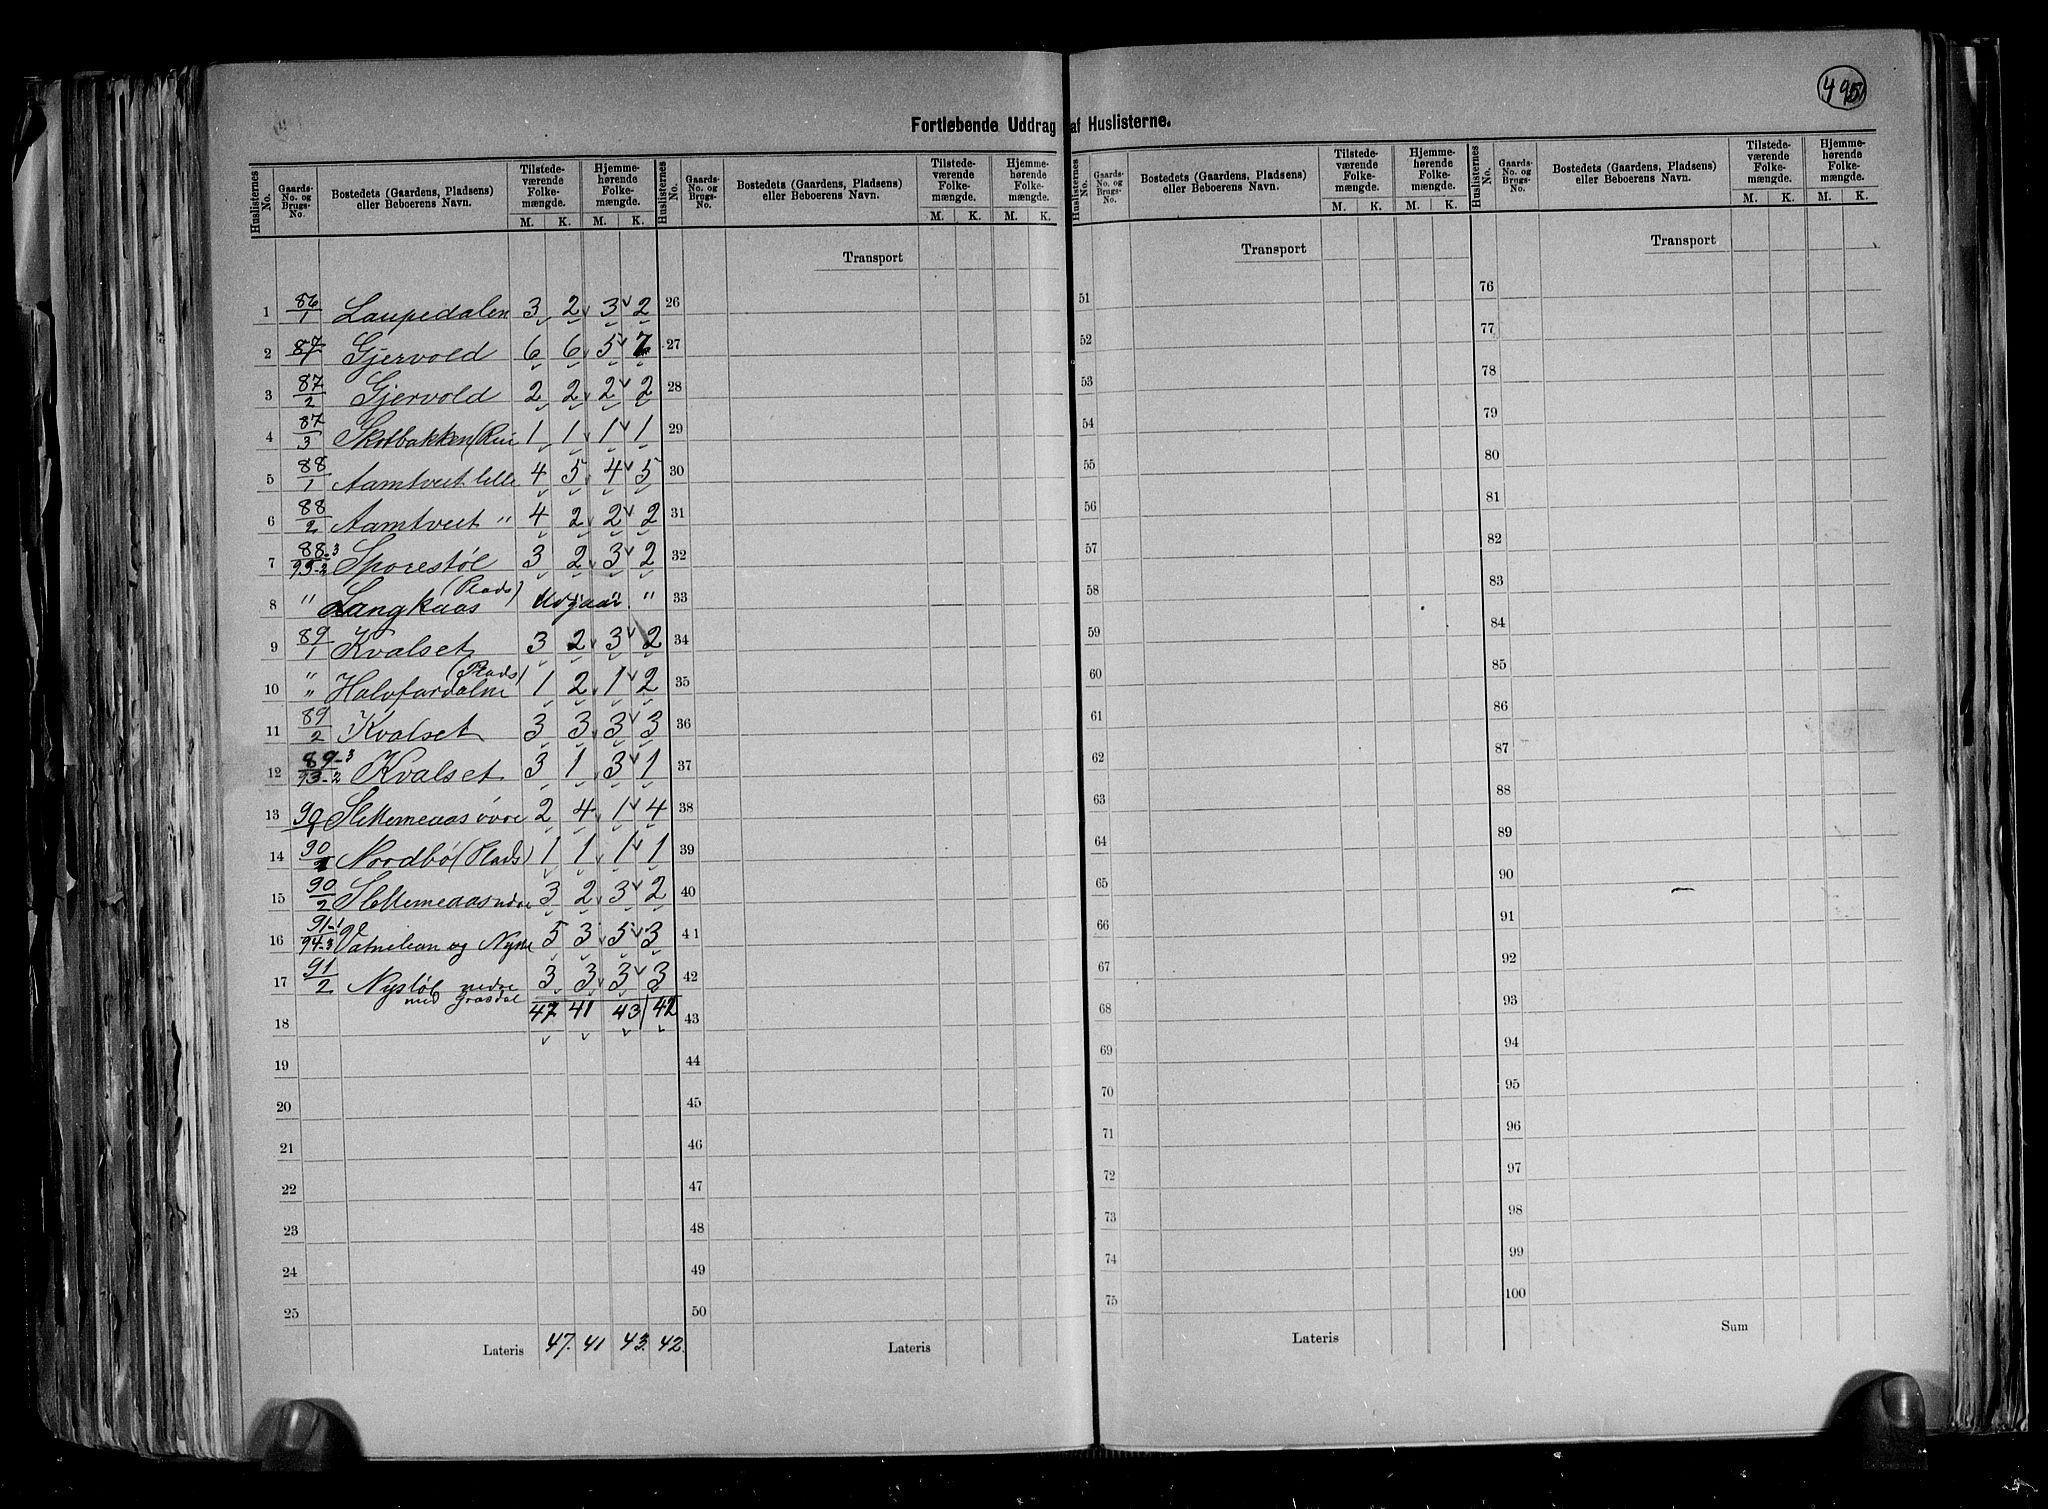 495
Fortløbende Uddrag af Huslisterne.
Huslisternes No. Gaards-No. og Brugs-No. Bostedets (Gaardens, Pladsens) eller Beboerens Navn. Tilstedeværende Folkemængde. M. K. Hjemmehørende Folkemængde. M. K.
1 86/1 Laupedalen 3 2 3 2
2 87/1 Gjervold 6 6 5 7
3 87/2 Gjervold 2 2 2 2
4 87/3 Skotbakken 1 1 1 1
5 88/1 Aamtveit lille 4 5 4 5
6 88/2 Aamtveit " 4 2 2 2
7 88-3/93-2 Sporestøl 3 2 3 2
8 " Langkaas (Plads) Udgaar " "
9 89/1 Kvalset 3 2 3 2
10 " Halvfardalne (Plads) 1 2 1 2
11 89/2 Kvalset 3 3 3 3
12 89-3/93-2 Kvalset 3 1 3 1
13 90/1 Slettemeaas øvre 2 4 1 4
14 90/1 Nordbö (Plads) 1 1 1 1
15 90/2 Slettemeaas nedre 3 2 3 2
16 91-1/94-3 Vatnelian og 5 3 5 3
17 91/2 Nystöl nedre 3 3 3 3
med Grasdal
18 47 41 43 42
19
20
21
22
23
24
25
Lateris 47. 41 43. 42.
Huslisternes No. Gaards-No. og Brugs-No. Bostedets (Gaardens, Pladsens) eller Beboerens Navn. Tilstedeværende Folkemængde. M. K. Hjemmehørende Folkemængde. M. K.
Transport
26
27
28
29
30
31
32
33
34
35
36
37
38
39
40
41
42
43
44
45
46
47
48
49
50
Lateris
Huslisternes No. Gaards-No. og Brugs-No. Bostedets (Gaardens, Pladsens) eller Beboerens Navn. Tilstedeværende Folkemængde. M. K. Hjemmehørende Folkemængde. M. K.
Transport
51
52
53
54
55
56
57
58
59
60
61
62
63
64
65
66
67
68
69
70
71
72
73
74
75
Lateris
Huslisternes No. Gaards-No. og Brugs-No. Bostedets (Gaardens, Pladsens) eller Beboerens Navn. Tilstedeværende Folkemængde. M. K. Hjemmehørende Folkemængde. M. K.
Transport
76
77
78
79
80
81
82
83
84
85
86
87
88
89
90
91
92
93
94
95
96
97
98
99
100
Sum